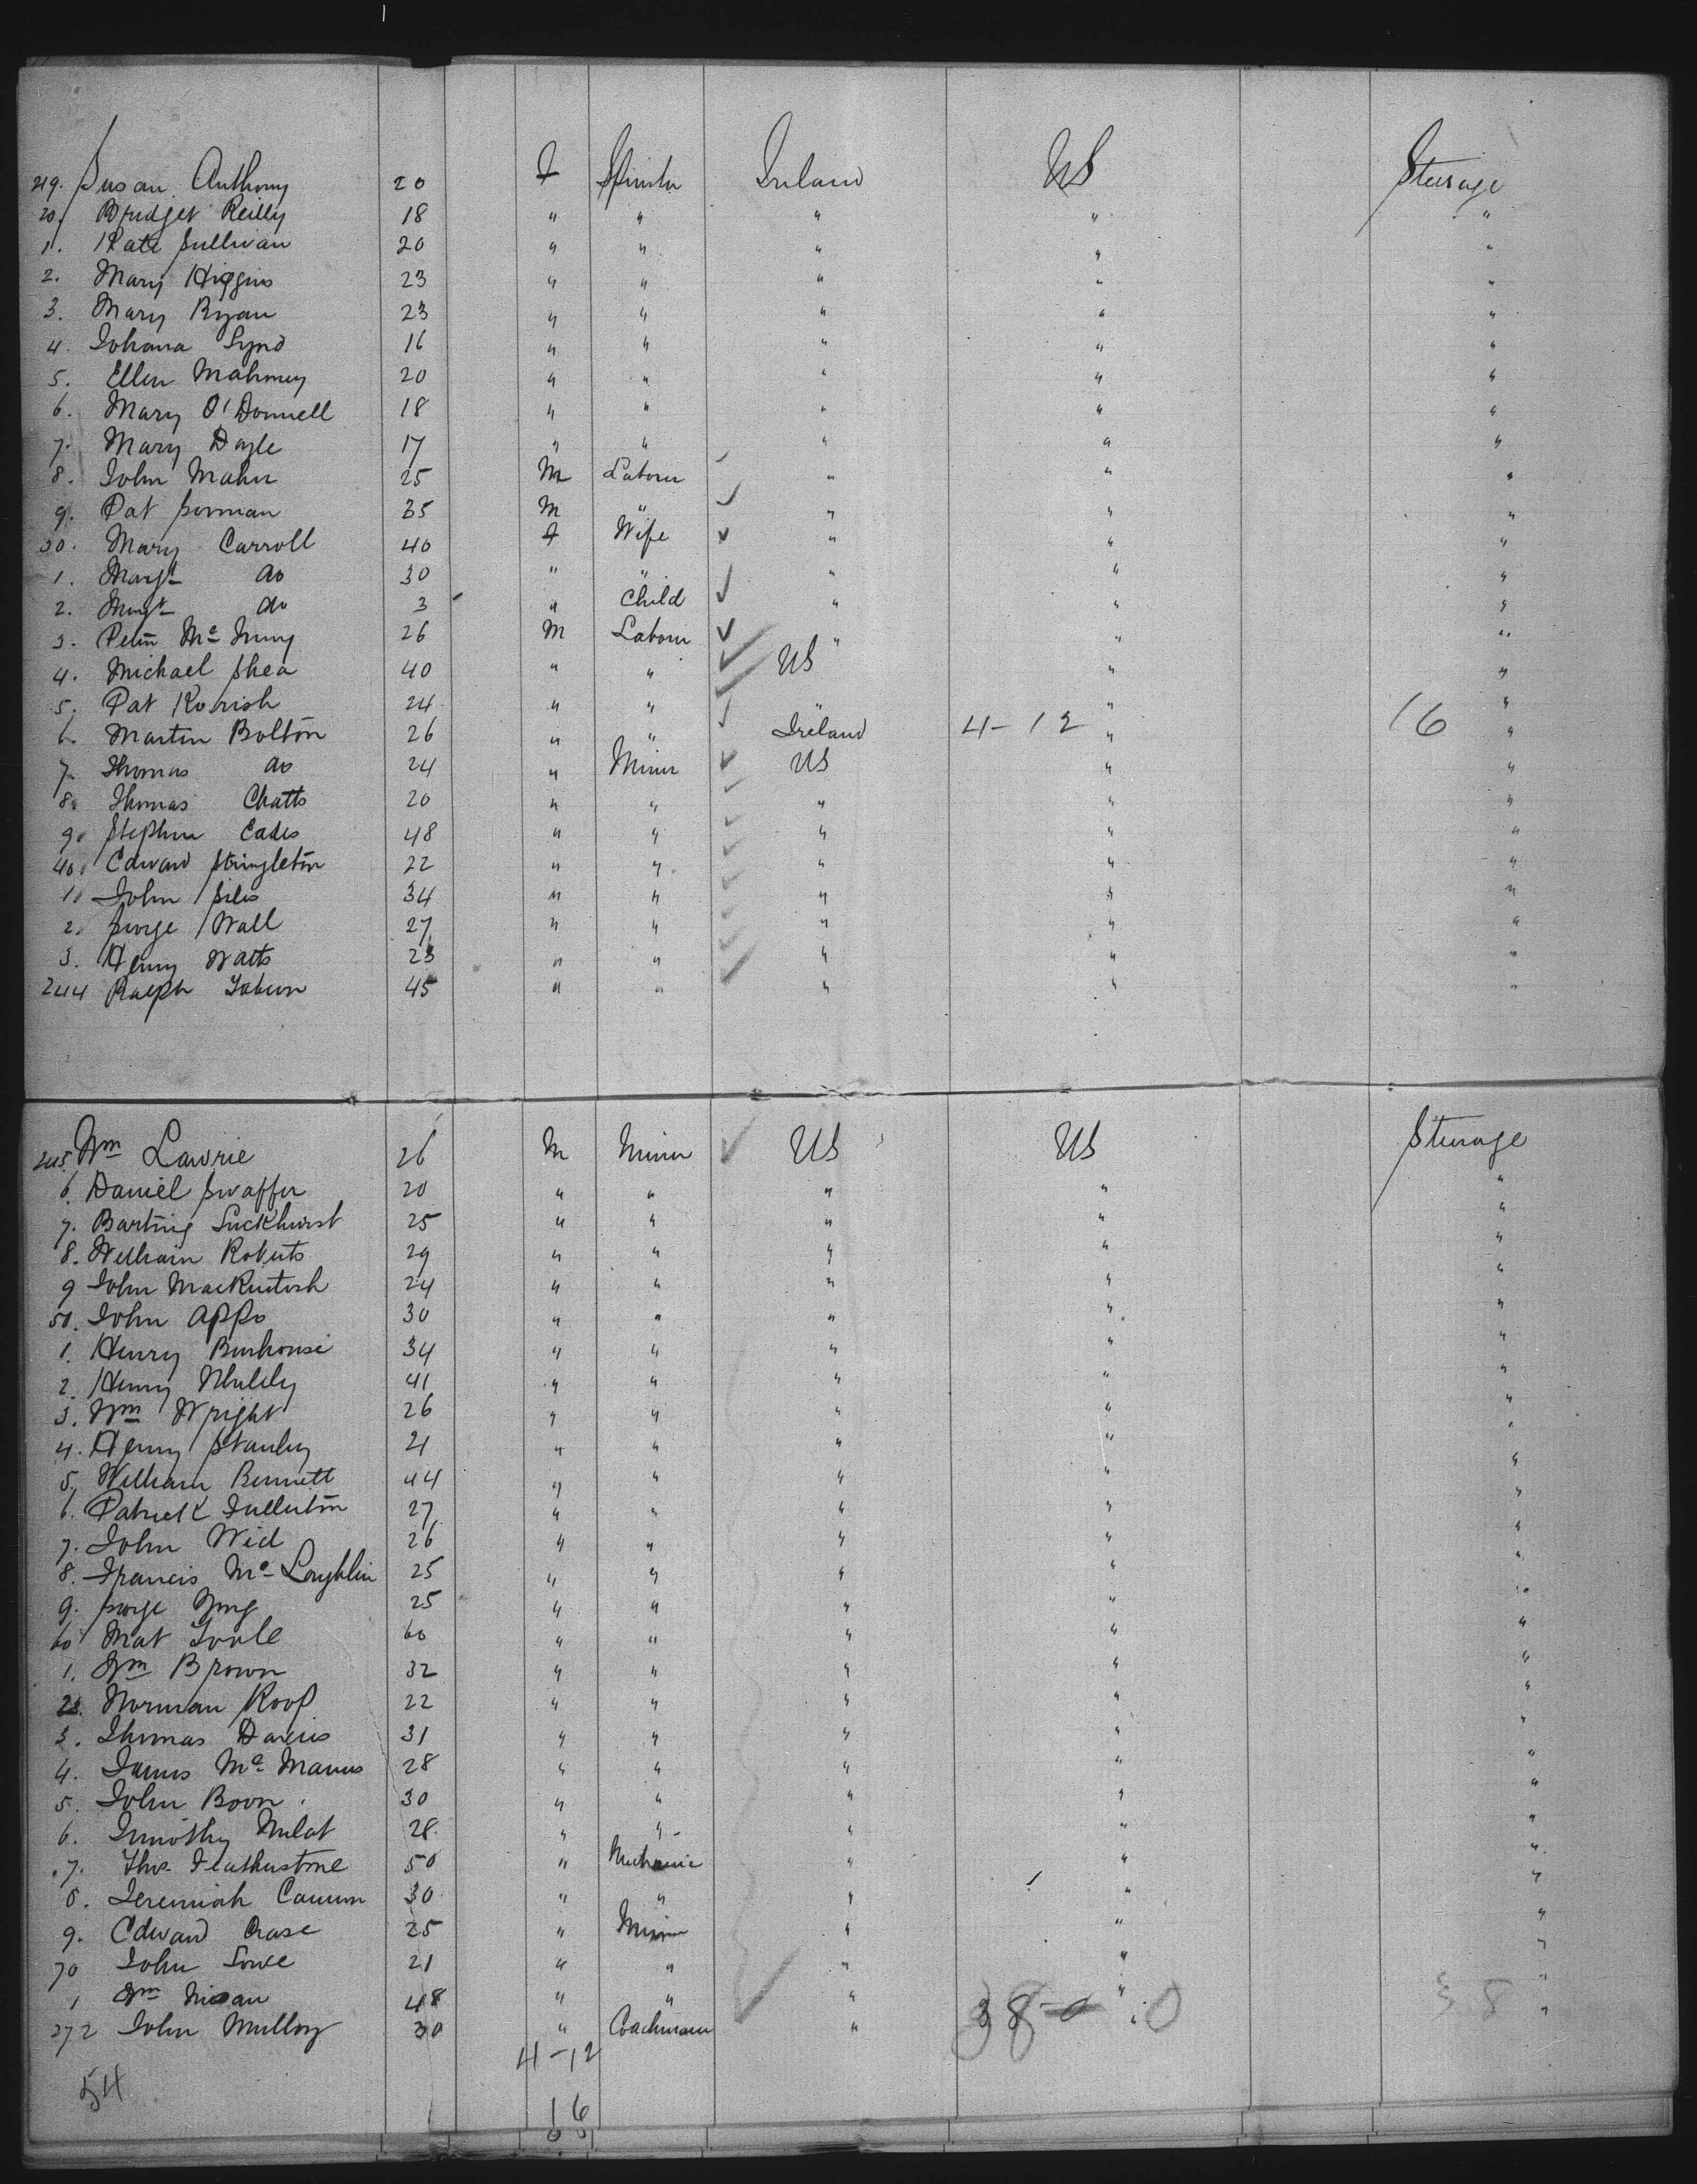 219. Susan Anthony 20 F Spinster Ireland US Steerage
20. Bridget Reilly 18 " " " " "
1. Kate Sullivan 20 " " " " "
2. Mary Higgins 23 " " " " "
3. Mary Ryan 23 " " " " "
4. Johana Lynd 16 " " " " "
5. Ellen Mahoney 20 " " " " "
6. Mary O'Donnell 18 " " " " "
7. Mary Doyle 17 " " " " "
8. John Maher 25 M Laborer " " "
9. Pat Gorman 35 M " " " "
30. Mary Carroll 40 F Wife " " "
1. Margt do 30 " " " " "
2. Margt do 3 " Child " " "
3. Peter Mc 26 M Laborer " " "
4. Michael Shea 40 " " US " "
5. Pat 24 " " " " "
6. Martin Bolton 26 " " Ireland 4-12 " 16 "
7. Thomas do 24 " Miner US " "
8. Thomas Chatts 20 " " " " "
9. Stephen Eades 48 " " " " "
40. Edward Stringleton 22 " " " " "
1. John Giles 34 " " " " "
2. George Wall 27 " " " " "
3. Henry Watts 23 " " " " "
244 Ralph 45 " " " " "
245. Wm Lawrie 26 M Miner US US Steerage
6. Daniel Swaffer 20 " " " " "
7. Luckhurst 25 " " " " "
8. William Roberts 29 " " " " "
9 John MacKintosh 24 " " " " "
50. John Appo 30 " " " " "
1. Henry 34 " " " " "
2. Henry 41 " " " " "
3. Wm Wright 26 " " " " "
4. Henry Stanley 21 " " " " "
5. William Bennett 44 " " " " "
6. Patrick Fullerton 27 " " " " "
7. John Wid 26 " " " " "
8. Francis Mc Loughlin 25 " " " " "
9. George 25 " " " " "
60 Mat Toole 60 " " " " "
1. Wm Brown 32 " " " " "
2. Norman Roop 22 " " " " "
3. Thomas Davis 31 " " " " "
4. James Mc Manus 28 " " " " "
5. John Boon 30 " " " " "
6. Timothy 28 " " " " "
7. Thos Featherstone 50 " Mechanic " " "
8. Jeremiah Cannon 30 " " " " "
9. Edward Crase 25 " Miner " " "
70 John Lowe 21 " " " " "
1 Wm 48 " " " " "
272 John Mulloy 30 " Coachman " 38-0 " 0 38 "
4-12
54
16